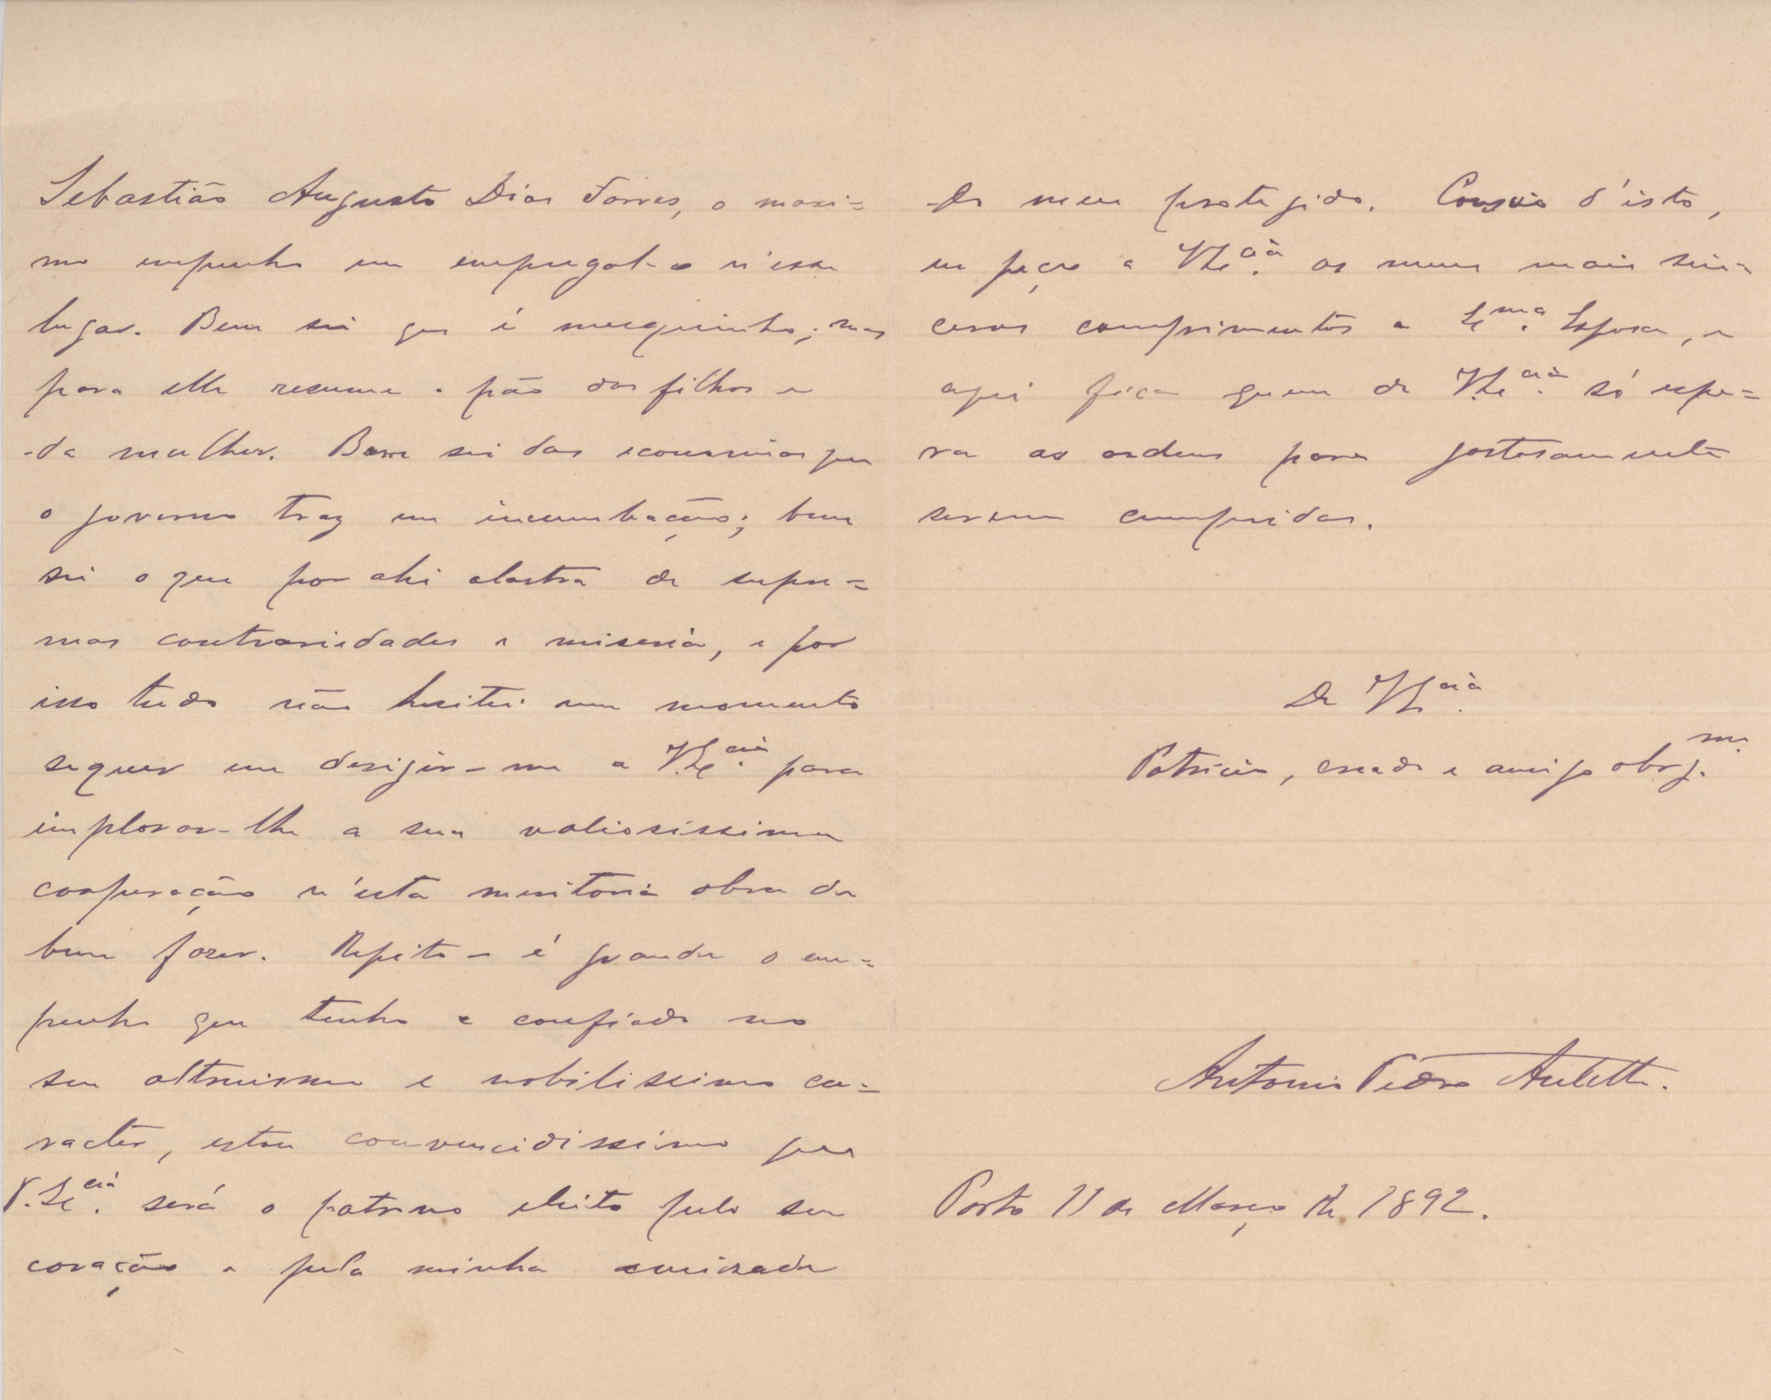 Sebastião Augusto Dias Torres, o maxi=
mo empenho em empregal-o n'esse
lugar. Bem sei que é mesquinho; mas
para elle resume o pão dos filhos e
da mulher. Bem sei das economias que
o governo traz em incumbação; bem
sei o que por ahi alastra de supre=
mas contrariedades e miseria, e por
isso tudo não hesitei um momento
sequer em derigir-me a V. Ex.cia para
implorar-lhe a sua valiosissima
cooperação n'esta meritoria obra de
bem fazer. Repito - é grande o em=
penho que tenho e confiado no
seu altruismo e nobilissimo ca=
racter, estou convencidissimo que
V. Ex.cia será o patrono eleito pelo seu
coração e pela minha amizade
do meu protegido. d'isto,
eu peço a V. Ex.cia os meus mais sin=
ceros comprimentos a Ex.ma Esposa, e
aqui fica quem de V. Ex.cia só espe=
ra as ordens para gostosamente
serem cumpridas.
De V. Ex.cia
Patricio, creado e amigo obrg.mo
Antonio Pedro Auletta.
Porto 11 de Março de 1892.